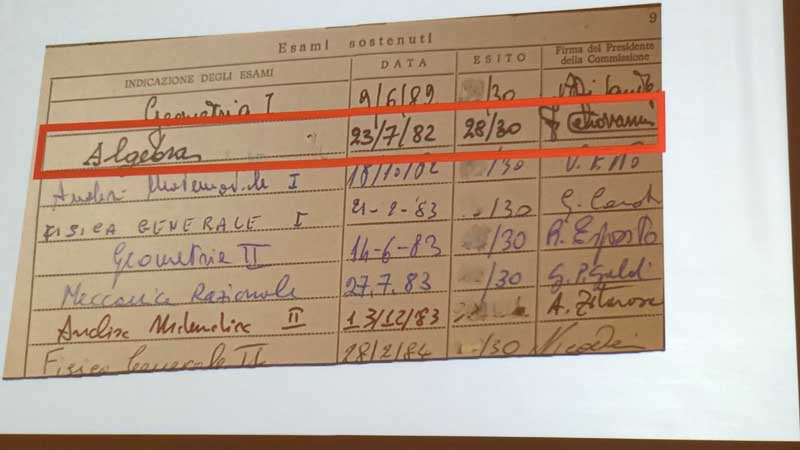 9
Esami sostenuti
INDICAZIONE DEGLI ESAMI DATA ESITO Firma del Presidente della Commissione
Geometria I 9/6/82 /30
Algebra 23/7/82 28/30
Analisi Matematica I 18/10/82 /30
FISICA GENERALE I 21-2-'83 /30 G.
Geometria II 14-6-83 /30 R. Esposito
Meccanica Razionale 27.7.83 /30 G.P. Galdi
Analisi Matematica II 13/12/83 A. Zitarosa
Fisica Generale II 28/2/84 /30